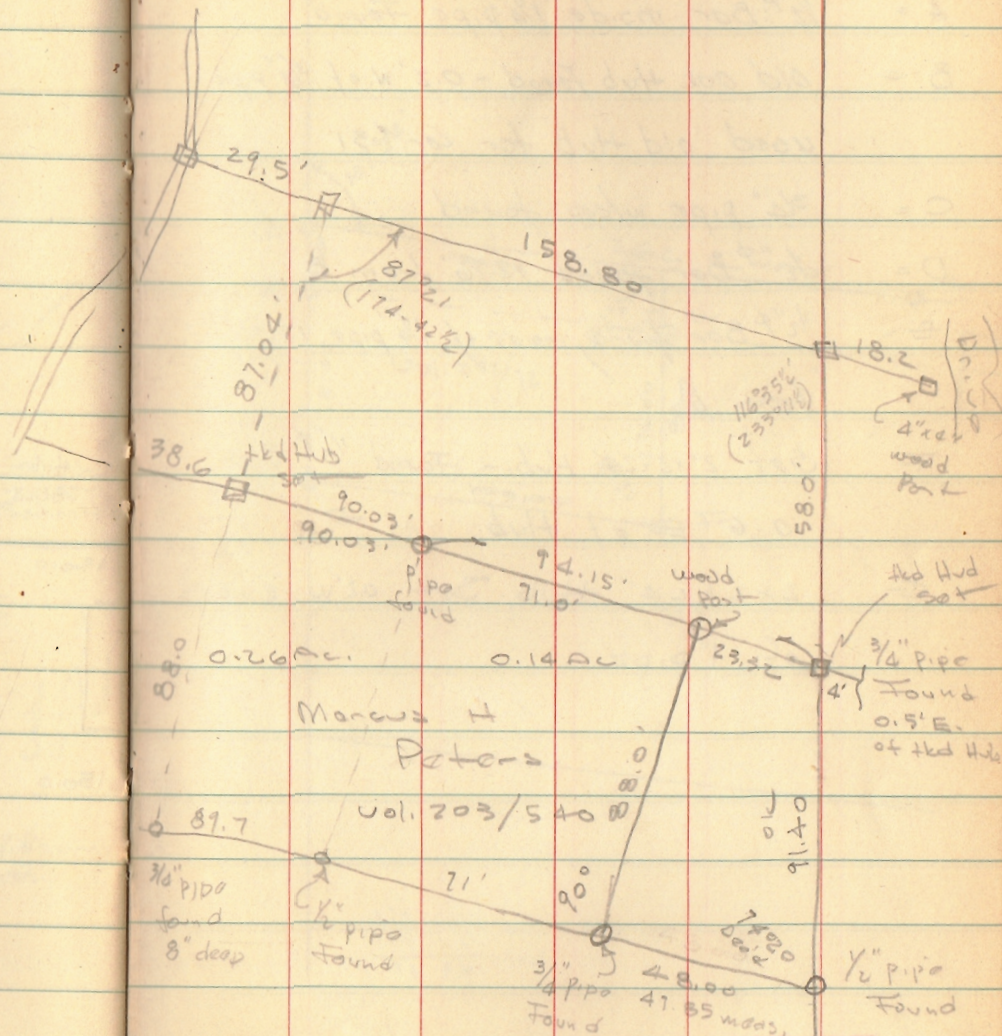 29.5'
158.80
87°21'
(174-42½)
87.04'
18.2
116°35½'
4"x4"
wood
Post
38.6
tkd Hub
Set
58.0'
90.03'
90.03'
pipe
found
94.15'
71.0'
wood
Post
tkd Hub
Set
23.32
4'
3/4" pipe
Found
0.5' E.
of tkd Hub
0.26 Ac.
0.14 Ac
88.0
Marcus H
Peters
vol. 203/540
88.0'
ok
91.40
89.7
71'
90°
3/4" pipe
found
8" deep
1/2" pipe
Found
Deed
3/4" pipe
Found
48.00
47.85 meas.
1/2" pipe
Found